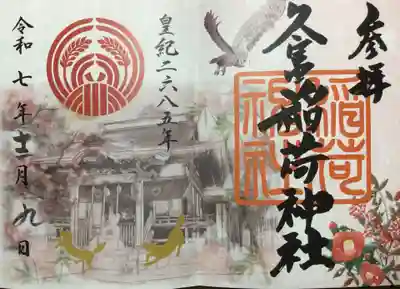 参拝
久冨稲荷神社
稲荷神社
皇紀二六八五年
令和七年十一月九日